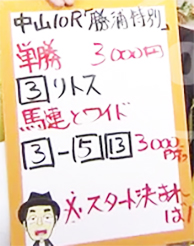 中山10R「勝浦特別」
単勝 3000円
3リトス
馬連とワイド
3-5 13 3000円ずつ
※スタート決まれば!